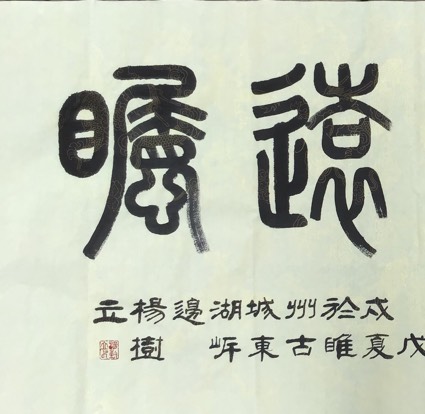 遠矚
戊
戌夏
於睢
州古
城東
湖岸
邊
楊樹
立